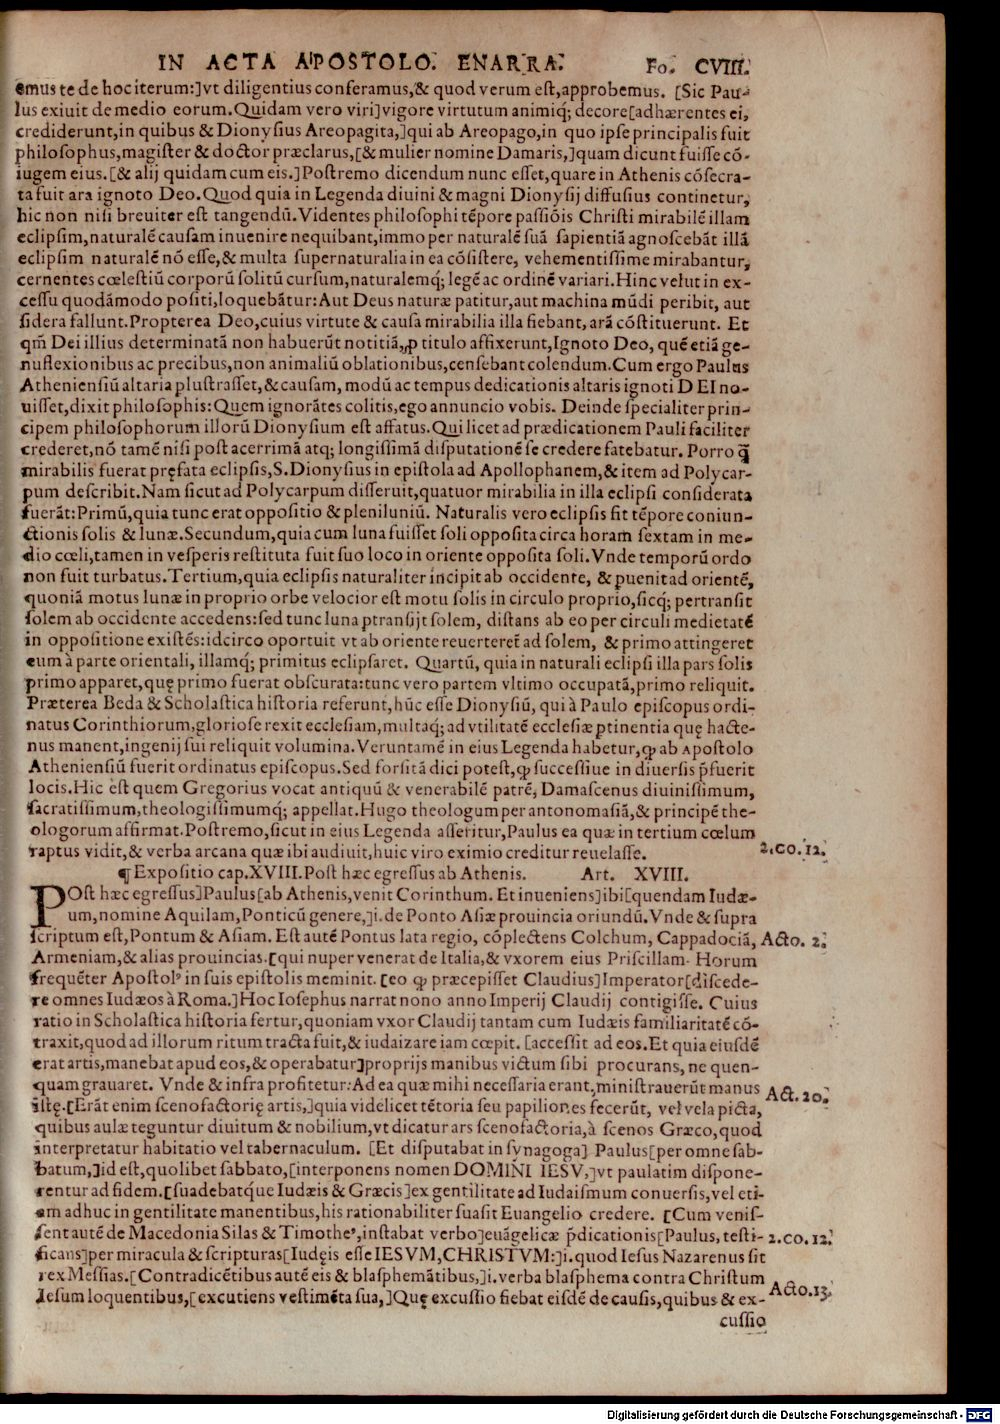 IN ACTA APOSTOLO. ENARRA. Fo. CVIII.
emus te de hoc iterum:]vt diligentius conferamus,& quod verum est,approbemus. [Sic Pau-
lus exiuit de medio eorum.Quidam vero viri]vigore virtutum animiq; decore[adhærentes ei,
crediderunt,in quibus & Dionysius Areopagita,]qui ab Areopago,in quo ipse principalis fuit
philosophus,magister & doctor præclarus,[& mulier nomine Damaris,]quam dicunt fuisse cō-
iugem eius.[& alij quidam cum eis.]Postremo dicendum nunc esset,quare in Athenis cōsecra-
ta fuit ara ignoto Deo.Quod quia in Legenda diuini & magni Dionysij diffusius continetur,
hic non nisi breuiter est tangendū.Videntes philosophi tēpore passiōis Christi mirabilē illam
eclipsim,naturalē causam inuenire nequibant,immo per naturalē suā sapientiā agnoscebāt illā
eclipsim naturalē nō esse,& multa supernaturalia in ea cōsistere, vehementissime mirabantur,
cernentes cœlestiū corporū solitū cursum,naturalemq; legē ac ordinē variari.Hinc velut in ex-
cessu quodāmodo positi,loquebātur:Aut Deus naturæ patitur,aut machina mūdi peribit, aut
sidera fallunt.Propterea Deo,cuius virtute & causa mirabilia illa fiebant,arā cōstituerunt. Et
qm̄ Dei illius determinatā non habuerūt notitiā,ꝓ titulo affixerunt,Ignoto Deo, quē etiā ge-
nuflexionibus ac precibus,non animaliū oblationibus,censebant colendum.Cum ergo Paulus
Atheniensiū altaria plustrasset,& causam, modū ac tempus dedicationis altaris ignoti DEI no-
uisset,dixit philosophis:Quem ignorātes colitis,ego annuncio vobis. Deinde specialiter prin-
cipem philosophorum illorū Dionysium est affatus.Qui licet ad prædicationem Pauli faciliter
crederet,nō tamē nisi post acerrimā atq; longissimā disputationē se credere fatebatur. Porro q̄
mirabilis fuerat pręfata eclipsis,S.Dionysius in epistola ad Apollophanem,& item ad Polycar-
pum describit.Nam sicut ad Polycarpum disseruit,quatuor mirabilia in illa eclipsi considerata
fuerāt:Primū,quia tunc erat oppositio & pleniluniū. Naturalis vero eclipsis fit tēpore coniun-
ctionis solis & lunæ.Secundum,quia cum luna fuisset soli opposita circa horam sextam in me-
dio cœli,tamen in vesperis restituta fuit suo loco in oriente opposita soli.Vnde temporū ordo
non fuit turbatus.Tertium,quia eclipsis naturaliter incipit ab occidente, & puenit ad orientē,
quoniā motus lunæ in proprio orbe velocior est motu solis in circulo proprio,sicq; pertransit
solem ab occidente accedens:sed tunc luna ptransijt solem, distans ab eo per circuli medietatē
in oppositione existēs:idcirco oportuit vt ab oriente reuerteret̄ ad solem, & primo attingeret
eum à parte orientali, illamq; primitus eclipsaret. Quartū, quia in naturali eclipsi illa pars solis
primo apparet,quę primo fuerat obscurata:tunc vero partem vltimo occupatā,primo reliquit.
Præterea Beda & Scholastica historia referunt,hūc esse Dionysiū, qui à Paulo episcopus ordi-
natus Corinthiorum,gloriose rexit ecclesiam,multaq; ad vtilitatē ecclesiæ ptinentia quę hacte-
nus manent,ingenij sui reliquit volumina.Veruntamē in eius Legenda habetur,ꝙ ab Apostolo
Atheniensiū fuerit ordinatus episcopus.Sed forsitā dici potest,ꝙ successiue in diuersis p̄fuerit
locis.Hic est quem Gregorius vocat antiquū & venerabilē patrē, Damascenus diuinissimum,
sacratissimum,theologissimumq; appellat.Hugo theologum per antonomasiā,& principē the-
ologorum affirmat.Postremo,sicut in eius Legenda asseritur,Paulus ea quæ in tertium cœlum
raptus vidit,& verba arcana quæ ibi audiuit,huic viro eximio creditur reuelasse. 2.CO.12.
¶ Expositio cap.XVIII.Post hæc egressus ab Athenis. Art. XVIII.
POst hæc egressus]Paulus[ab Athenis,venit Corinthum. Et inueniens]ibi[quendam Iudæ-
um,nomine Aquilam,Ponticū genere,]i.de Ponto Asiæ prouincia oriundū.Vnde & supra
scriptum est,Pontum & Asiam. Est autē Pontus lata regio, cōplectens Colchum, Cappadociā, Acto. 2.
Armeniam,& alias prouincias.[qui nuper venerat de Italia,& vxorem eius Priscillam. Horum
frequēter Apostolꝰ in suis epistolis meminit. [eo ꝙ præcepisset Claudius]Imperator[discede-
re omnes Iudæos à Roma.]Hoc Iosephus narrat nono anno Imperij Claudij contigisse. Cuius
ratio in Scholastica historia fertur,quoniam vxor Claudij tantam cum Iudæis familiaritatē cō-
traxit,quod ad illorum ritum tracta fuit,& iudaizare iam cœpit. [accessit ad eos.Et quia eiusdē
erat artis,manebat apud eos,& operabatur]proprijs manibus victum sibi procurans, ne quen-
quam grauaret. Vnde & infra profitetur:Ad ea quæ mihi necessaria erant,ministrauerūt manus Act.20.
istę.[Erāt enim scenofactorię artis,]quia videlicet tētoria seu papiliones fecerūt, vel vela picta,
quibus aulæ teguntur diuitum & nobilium,vt dicatur ars scenofactoria,à scenos Græco,quod
interpretatur habitatio vel tabernaculum. [Et disputabat in synagoga] Paulus[per omne sab-
batum,]id est,quolibet sabbato,[interponens nomen DOMINI IESV,]vt paulatim dispone-
rentur ad fidem.[suadebatque Iudæis & Græcis]ex gentilitate ad Iudaismum conuersis,vel eti-
am adhuc in gentilitate manentibus,his rationabiliter suasit Euangelio credere. [Cum venis-
sent autē de Macedonia Silas & Timotheꝰ,instabat verbo]euāgelicæ p̄dicationis[Paulus, testi- 2.CO.12.
ficans]per miracula & scripturas[Iudęis esse IESVM,CHRISTVM:]i.quod Iesus Nazarenus sit
rex Messias.[Contradicētibus autē eis & blasphemātibus,]i.verba blasphema contra Christum
Iesum loquentibus,[excutiens vestimēta sua,]Quę excussio fiebat eisdē de causis,quibus & ex- Acto.13.
cussio
Digitalisierung gefördert durch die Deutsche Forschungsgemeinschaft - DFG